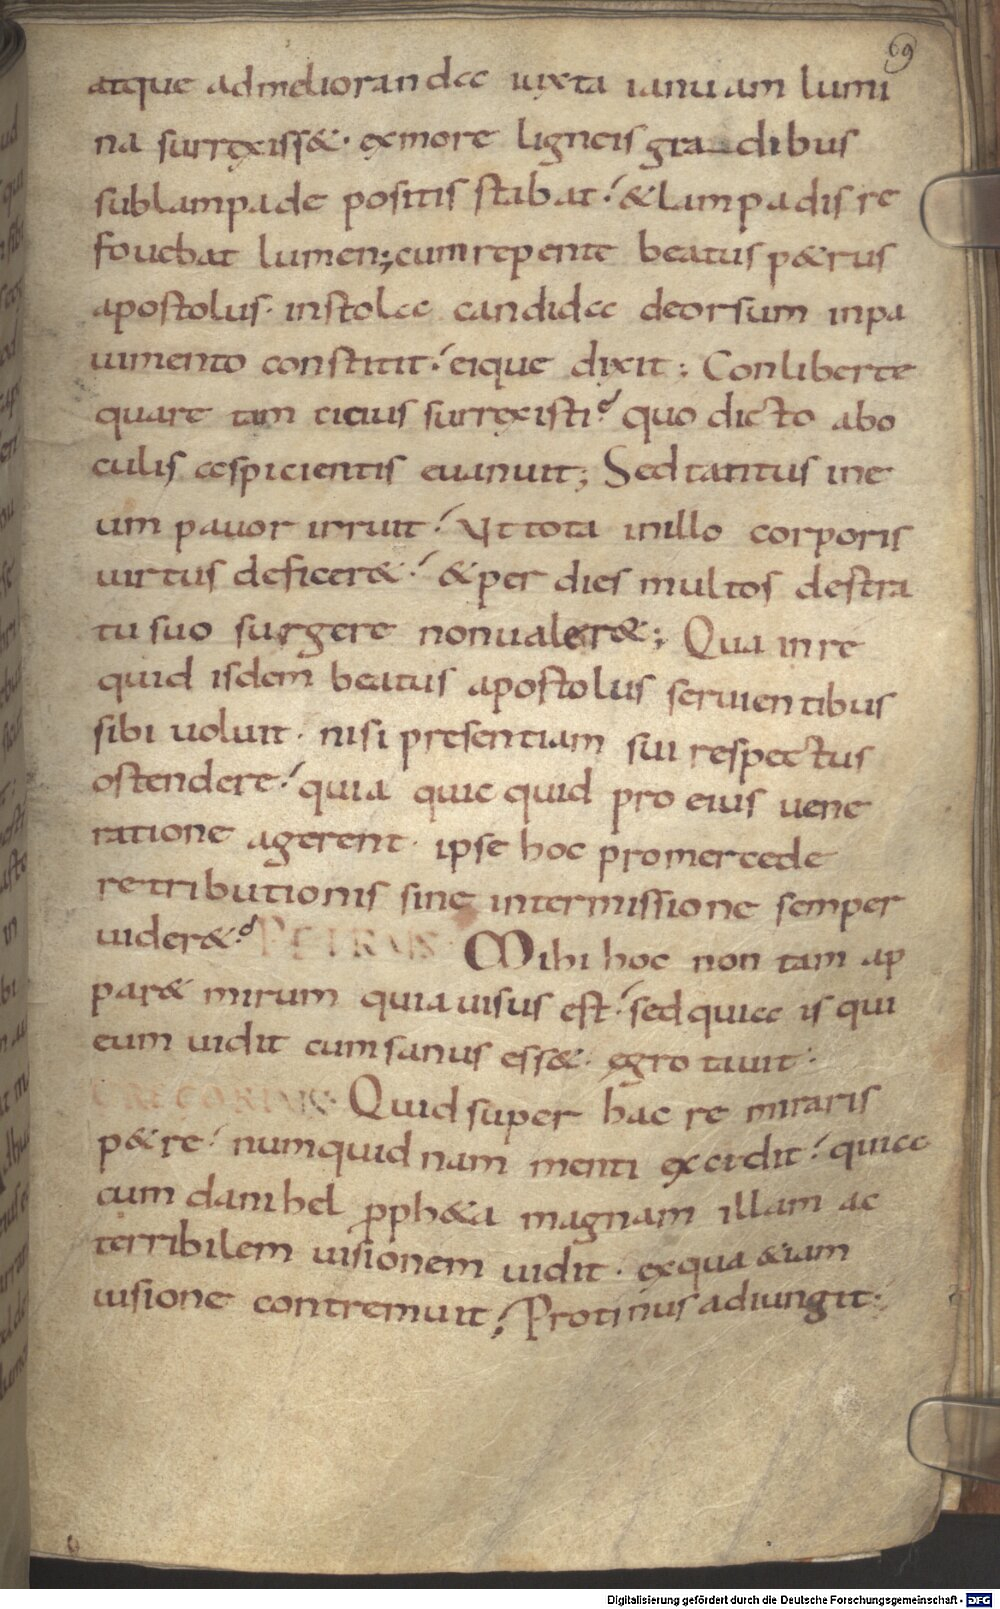 69
atque admeliorandcc iuxta ianuam lumi
na surrexiss&· exmore ligneis gra dibus
sublampade positis stabat? &lampadis re
fouebat lumen; cumrepente beatus p&rus
apostolus· instolcc candidcc deorsum inpa
uimento constitit? eique dixit; Conliberte
quare tam cicius surrexisti? quo dicto abo
culis ccspicientis euanuit; Sed tantus ine
um pauor irruit? Ut tota inillo corporis
uirtus deficer&? &per dies multos destra
tu suo surgere nonualer&; Qua in re
quid isdem beatus apostolus seruientibus
sibi uoluit· nisi presentiam sui respectus
ostendere? quia quic quid pro eius uene
ratione agerent· ipse hoc promercede
retributionis sine intermissione semper
uider&? PETRUS· Mihi hoc non tam ap
par& mirum quia uisus est? sed quicc is qui
eum uidit cum sanus ess&· ęgro tauit·
GREGORIUS· Quid super hac re miraris
p&re? numquid nam menti excidit? quicc
cum danihel pph&a magnam illam ac
terribilem uisionem uidit· exqua &iam
uisione contremuit? Protinus adiungit·
Digitalisierung gefördert durch die Deutsche Forschungsgemeinschaft - DFG